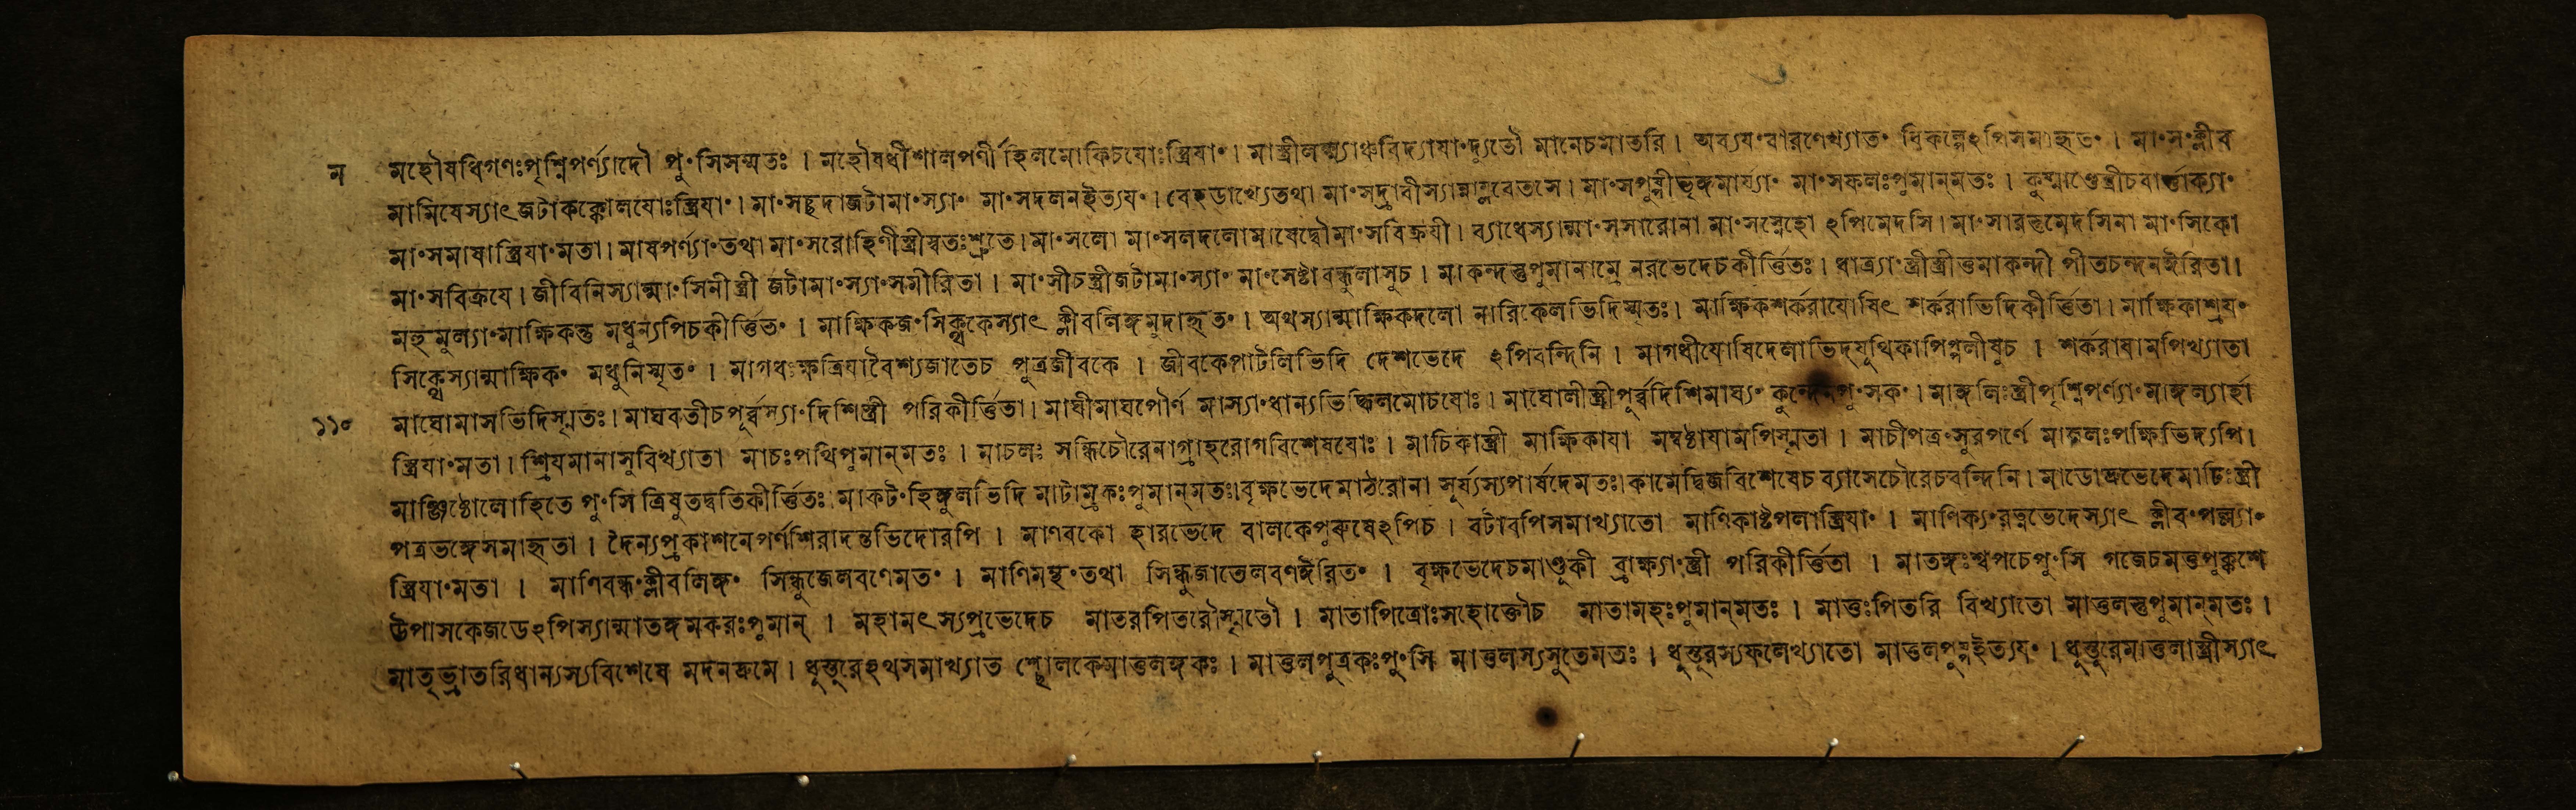 ম মহৌষধিগণঃপৃশ্নিপর্ণ্যাদৌ পুংসিসম্মতঃ । মহৌষধীশালপর্ণী হিলমোকিচযোঃস্ত্রিযাং । মাস্ত্রীলক্ষ্ম্যাঞ্চবিদ্যাযাংদ্যুতৌ মানেচমাতরি । অব্যযংবারণেখ্যাতং বিকল্পেঽপিসমাহৃতং । মাংসংক্লীব
মামিষেস্যাৎ জটাকক্কোলযোঃস্ত্রিযাং । মাংসচ্ছদাজটামাংস্যাং মাংসদলনইত্যযং । বেহডাখ্যেতথা মাংসদ্রাবীস্যান্নাম্লবেতসে । মাংসপুষ্পীভৃঙ্গমার্য্যাং মাংসফলঃপুমান্‌মতঃ । কুষ্মাণ্ডেস্ত্রীচবার্ত্তাক্যাং
মাংসমাষাস্ত্রিযাংমতা । মাষপর্ণ্যাংতথা মাংসরোহিণীস্ত্রীস্বতঃশ্রুতে । মাংসলো মাংসলদলোমাষেদ্বৌমাংসবিক্রযী । ব্যাধেস্যান্মাংসসারোনা মাংসস্নেহো ঽপিমেদসি । মাংসারস্তুমেদসিনা মাংসিকো
মাংসবিক্রযে । জীবিনিস্যান্মাংসিনীস্ত্রী জটামাংস্যাংসমীরিতা । মাংসীচস্ত্রীজটামাংস্যাং মাংসেষ্টাবল্গুলাসুচ । মাকন্দস্তুপুমানাম্রে নরভেদেচকীর্ত্তিতঃ । ধাত্র্যাংস্ত্রীস্ত্রীতুমাকন্দী পীতচন্দনঈরিতা ।
মহুমুল্যাংমাক্ষিকন্তু মধুন্যপিচকীর্ত্তিতং । মাক্ষিকজংসিক্‌থকেস্যাৎ ক্লীবলিঙ্গমুদাহৃতং । অথস্যান্মাক্ষিকদলো নারিকেলভিদিস্মৃতঃ । মাক্ষিকশর্করাযোষিৎ শর্করাভিদিকীর্ত্তিতা । মাক্ষিকাশ্রযং
সিক্‌থেস্যান্মাক্ষিকং মধুনিস্মৃতং । মাগধঃক্ষত্রিযাবৈশ্যজাতেচ পুত্রজীবকে । জীবকেপাটলিভিদি দেশভেদে ঽপিবন্দিনি । মাগধীযোষিদেলাভিদ্‌যূথিকাপিপ্পলীষুচ । শর্করাষামপিখ্যাতা
১১০ মাঘোমাসভিদিস্মৃতঃ । মাঘবতীচপূর্ব্বস্যাংদিশিস্ত্রী পরিকীর্ত্তিতা । মাঘীমাঘপৌর্ণ মাস্যাংধান্যভিদ্ধিলমোচযোঃ । মাঘোলীস্ত্রীপূর্ব্বদিশিমাঘ্যং কুন্দেনপুংসকং । মাঙ্গলিঃস্ত্রীপৃশ্নিপর্ণ্যাংমাঙ্গল্যার্হা
স্ত্রিযাংমতা । শ্রিযমানাসুবিখ্যাতা মাচঃপথিপুমান্‌মতঃ । মাচলঃ সন্ধিচৌরেনাগ্রাহরোগবিশেষযোঃ । মাচিকাস্ত্রী মাক্ষিকাযা মম্বষ্ঠাযামপিস্মৃতা । মাচীপত্রংসুরপর্ণে মাঙলঃপক্ষিভিদ্যপি ।
মাঞ্জিষ্ঠোলোহিতে পুংসি ত্রিষুতদ্বতিকীর্ত্তিতঃ । মাকটংহিঙ্গুলভিদি মাটাম্রকঃপুমান্‌মতঃ । বৃক্ষভেদেমাঠরোনা সূর্য্যস্যপার্ষদেমতঃ । কামেদ্বিজবিশেষেচ ব্যাসেচৌরেচবন্দিনি । মাডোদ্রুভেদেমাঢিঃস্ত্রী
পত্রভঙ্গেসমাহৃতা । দৈন্যপ্রকাশনেপর্ণশিরাদন্তভিদোরপি । মাণবকো হারভেদে বালকেপুরুষেঽপিচ । বটাবপিসমাখ্যাতো মাণিকাষ্টপলাস্ত্রিযাং । মাণিক্যংরত্নভেদেস্যাৎ ক্লীবংপল্ল্যাং
স্ত্রিযাংমতা । মাণিবন্ধংক্লীবলিঙ্গং সিন্ধুজেলবণেমতং । মাণিমন্থংতথা সিন্ধুজাতেলবণঈরিতং । বৃক্ষভেদেচমাণ্ডুকী ব্রাহ্ম্যাংস্ত্রী পরিকীর্ত্তিতা । মাতঙ্গঃশ্বপচেপুংসি গজেচমত্তপুক্কশে
উপাসকেজডেঽপিস্যান্মাতঙ্গমকরঃপুমান্ । মহামৎস্যপ্রভেদেচ মাতরপিতরৌস্মৃতৌ । মাতাপিত্রোঃসহোক্তৌচ মাতামহঃপুমান্‌মতঃ । মাতুঃপিতরি বিখ্যাতো মাতুলস্তুপুমান্‌মতঃ ।
মাতৃভ্রাতরিধান্যস্যবিশেষে মদনদ্রুমে । ধুস্তূরেঽথসমাখ্যাত শ্ছোলকেমাতুলঙ্গকঃ । মাতুলপুত্রকঃপুংসি মাতুলস্যসুতেমতঃ । ধুস্তূরস্যফলেখ্যাতো মাতুলপুষ্পইত্যযং । ধুস্তূরেমাতুলাস্ত্রীস্যাৎ